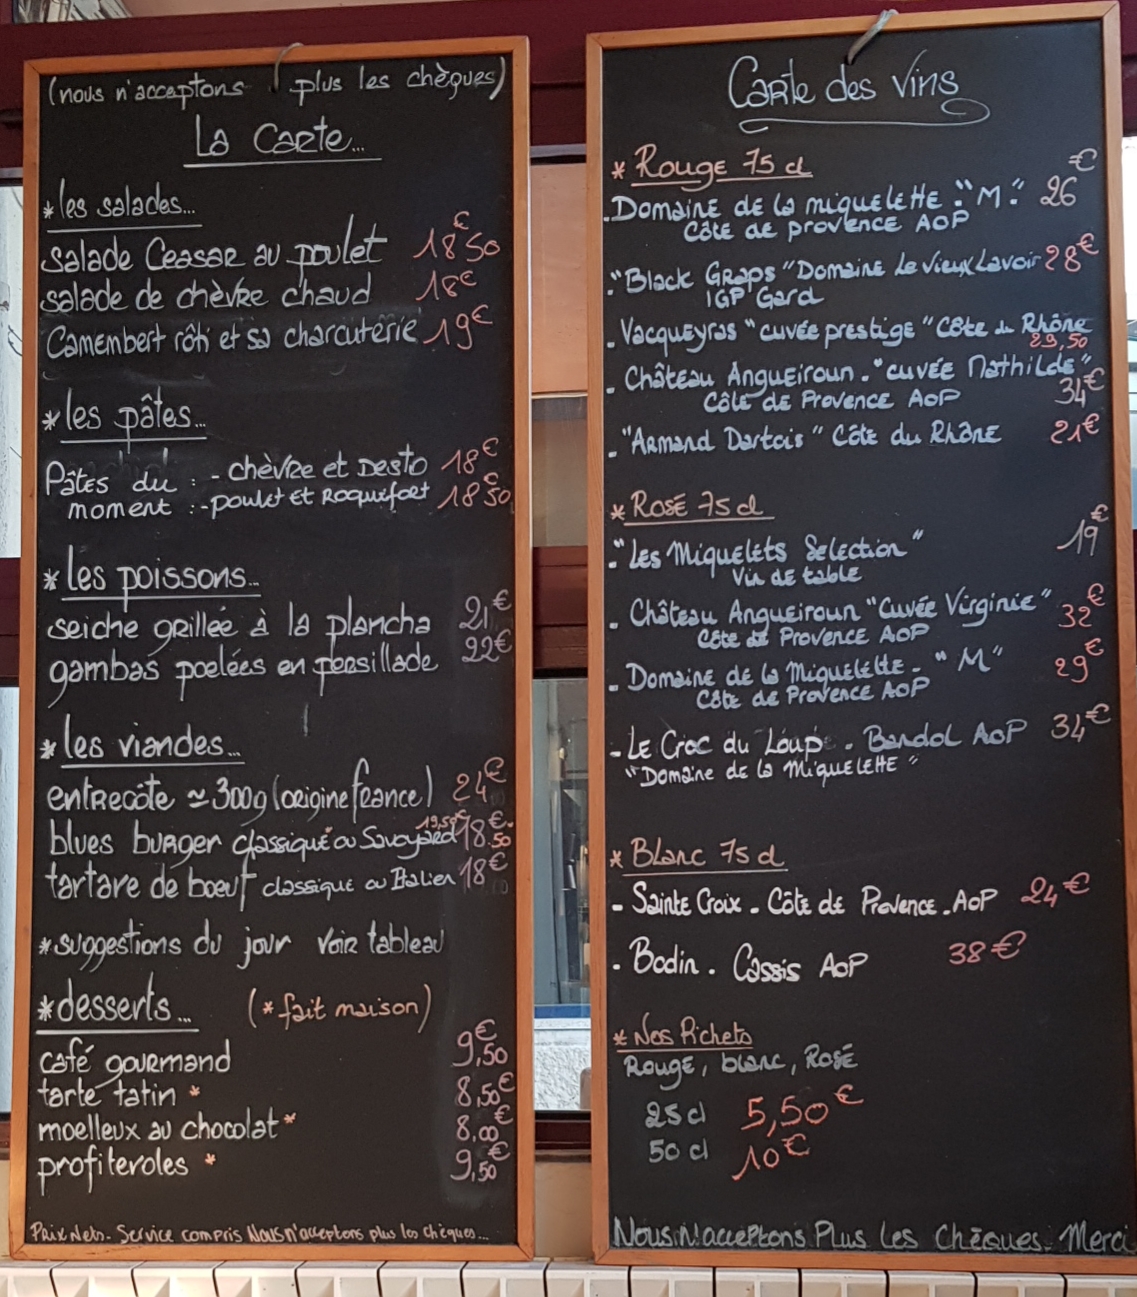 (nous n'acceptons plus les chèques)
La Carte...
*les salades...
salade Ceasar au poulet 18€50
salade de chèvre chaud 18€
Camembert rôti et sa charcuterie 19€
*les pâtes...
Pâtes du : - chèvre et Pesto 18€
moment : - poulet et Roquefort 18€50
*les poissons...
seiche grillée à la plancha 21€
gambas poelées en persillade 22€
*les viandes...
entrecôte ≃ 300g (origine france) 24€
19,50€
blues burger classique ou Savoyard 18€.50
tartare de boeuf classique ou Italien 18€
*suggestions du jour voir tableau
*desserts... (*fait maison)
café gourmand 9€,50
tarte tatin * 8,50€
moelleux au chocolat * 8,00€
profiteroles * 9,50€
Prix Nets - Service compris Nous n'acceptons plus les chèques...
Carte des Vins
* Rouge 75 cl
. Domaine de la miquelette : "M" 26€
Côte de provence AOP
. "Black Graps" Domaine le vieux Lavoir 28€
IGP Gard
. Vacqueyras "cuvée prestige" Côte du Rhône
29,50
. Château Angueiroun . "cuvée Mathilde"
Côte de Provence AOP 34€
. "Armand Dartois" Côte du Rhône 21€
* Rosé 75 cl
. "Les Miquelets Selection" 19€
Vin de table
. Château Angueiroun "Cuvée Virginie" 32€
Côte de Provence AOP
. Domaine de la Miquelette - "M" 29€
Côte de Provence AOP
- Le Croc du Loup . Bandol AOP 34€
"Domaine de la Miquelette"
* Blanc 75 cl
- Sainte Croix . Côte de Provence . AOP 24€
. Bodin . Cassis AOP 38€
* Nos Pichets
Rouge, blanc, Rosé
25 cl 5,50€
50 cl 10€
Nous N'acceptons Plus Les Chèques. Merci